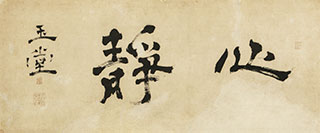 心靜
玉堂